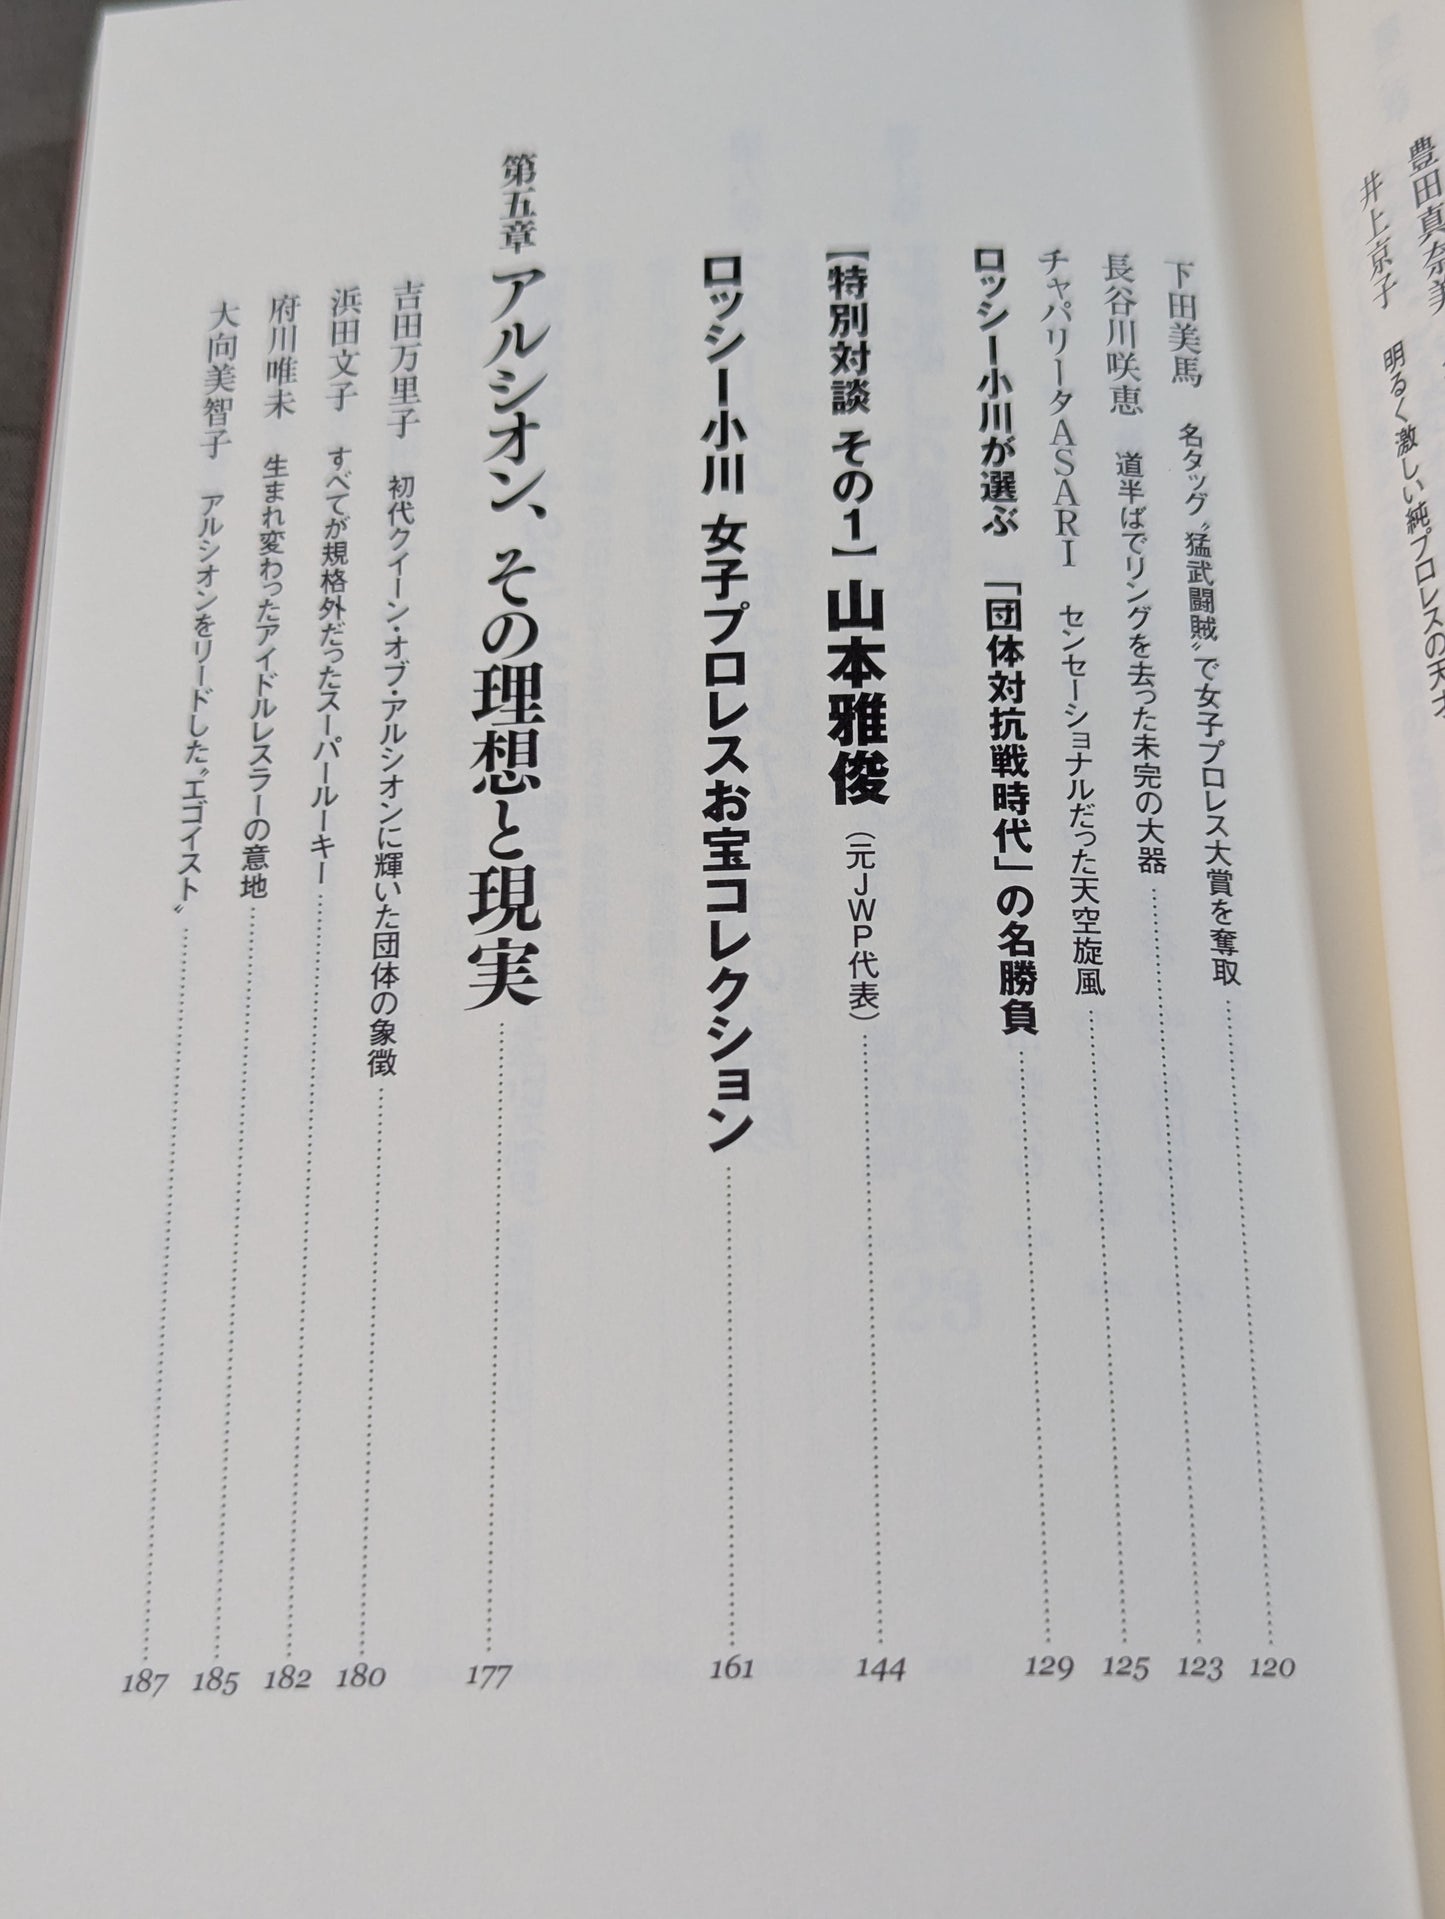 豊田真奈美
井上京子　明るく激しい純プロレスの天才
下田美馬　名タッグ〝猛武闘賊〟で女子プロレス大賞を奪取 120
長谷川咲恵　道半ばでリングを去った未完の大器 123
チャパリータASARI　センセーショナルだった天空旋風 125
ロッシー小川が選ぶ　「団体対抗戦時代」の名勝負 129
【特別対談 その1】山本雅俊（元JWP代表） 144
ロッシー小川 女子プロレスお宝コレクション 161
第五章 アルシオン、その理想と現実 177
吉田万里子　初代クイーン・オブ・アルシオンに輝いた団体の象徴 180
浜田文子　すべてが規格外だったスーパールーキー 182
府川唯未　生まれ変わったアイドルレスラーの意地 185
大向美智子　アルシオンをリードした〝エゴイスト〟 187